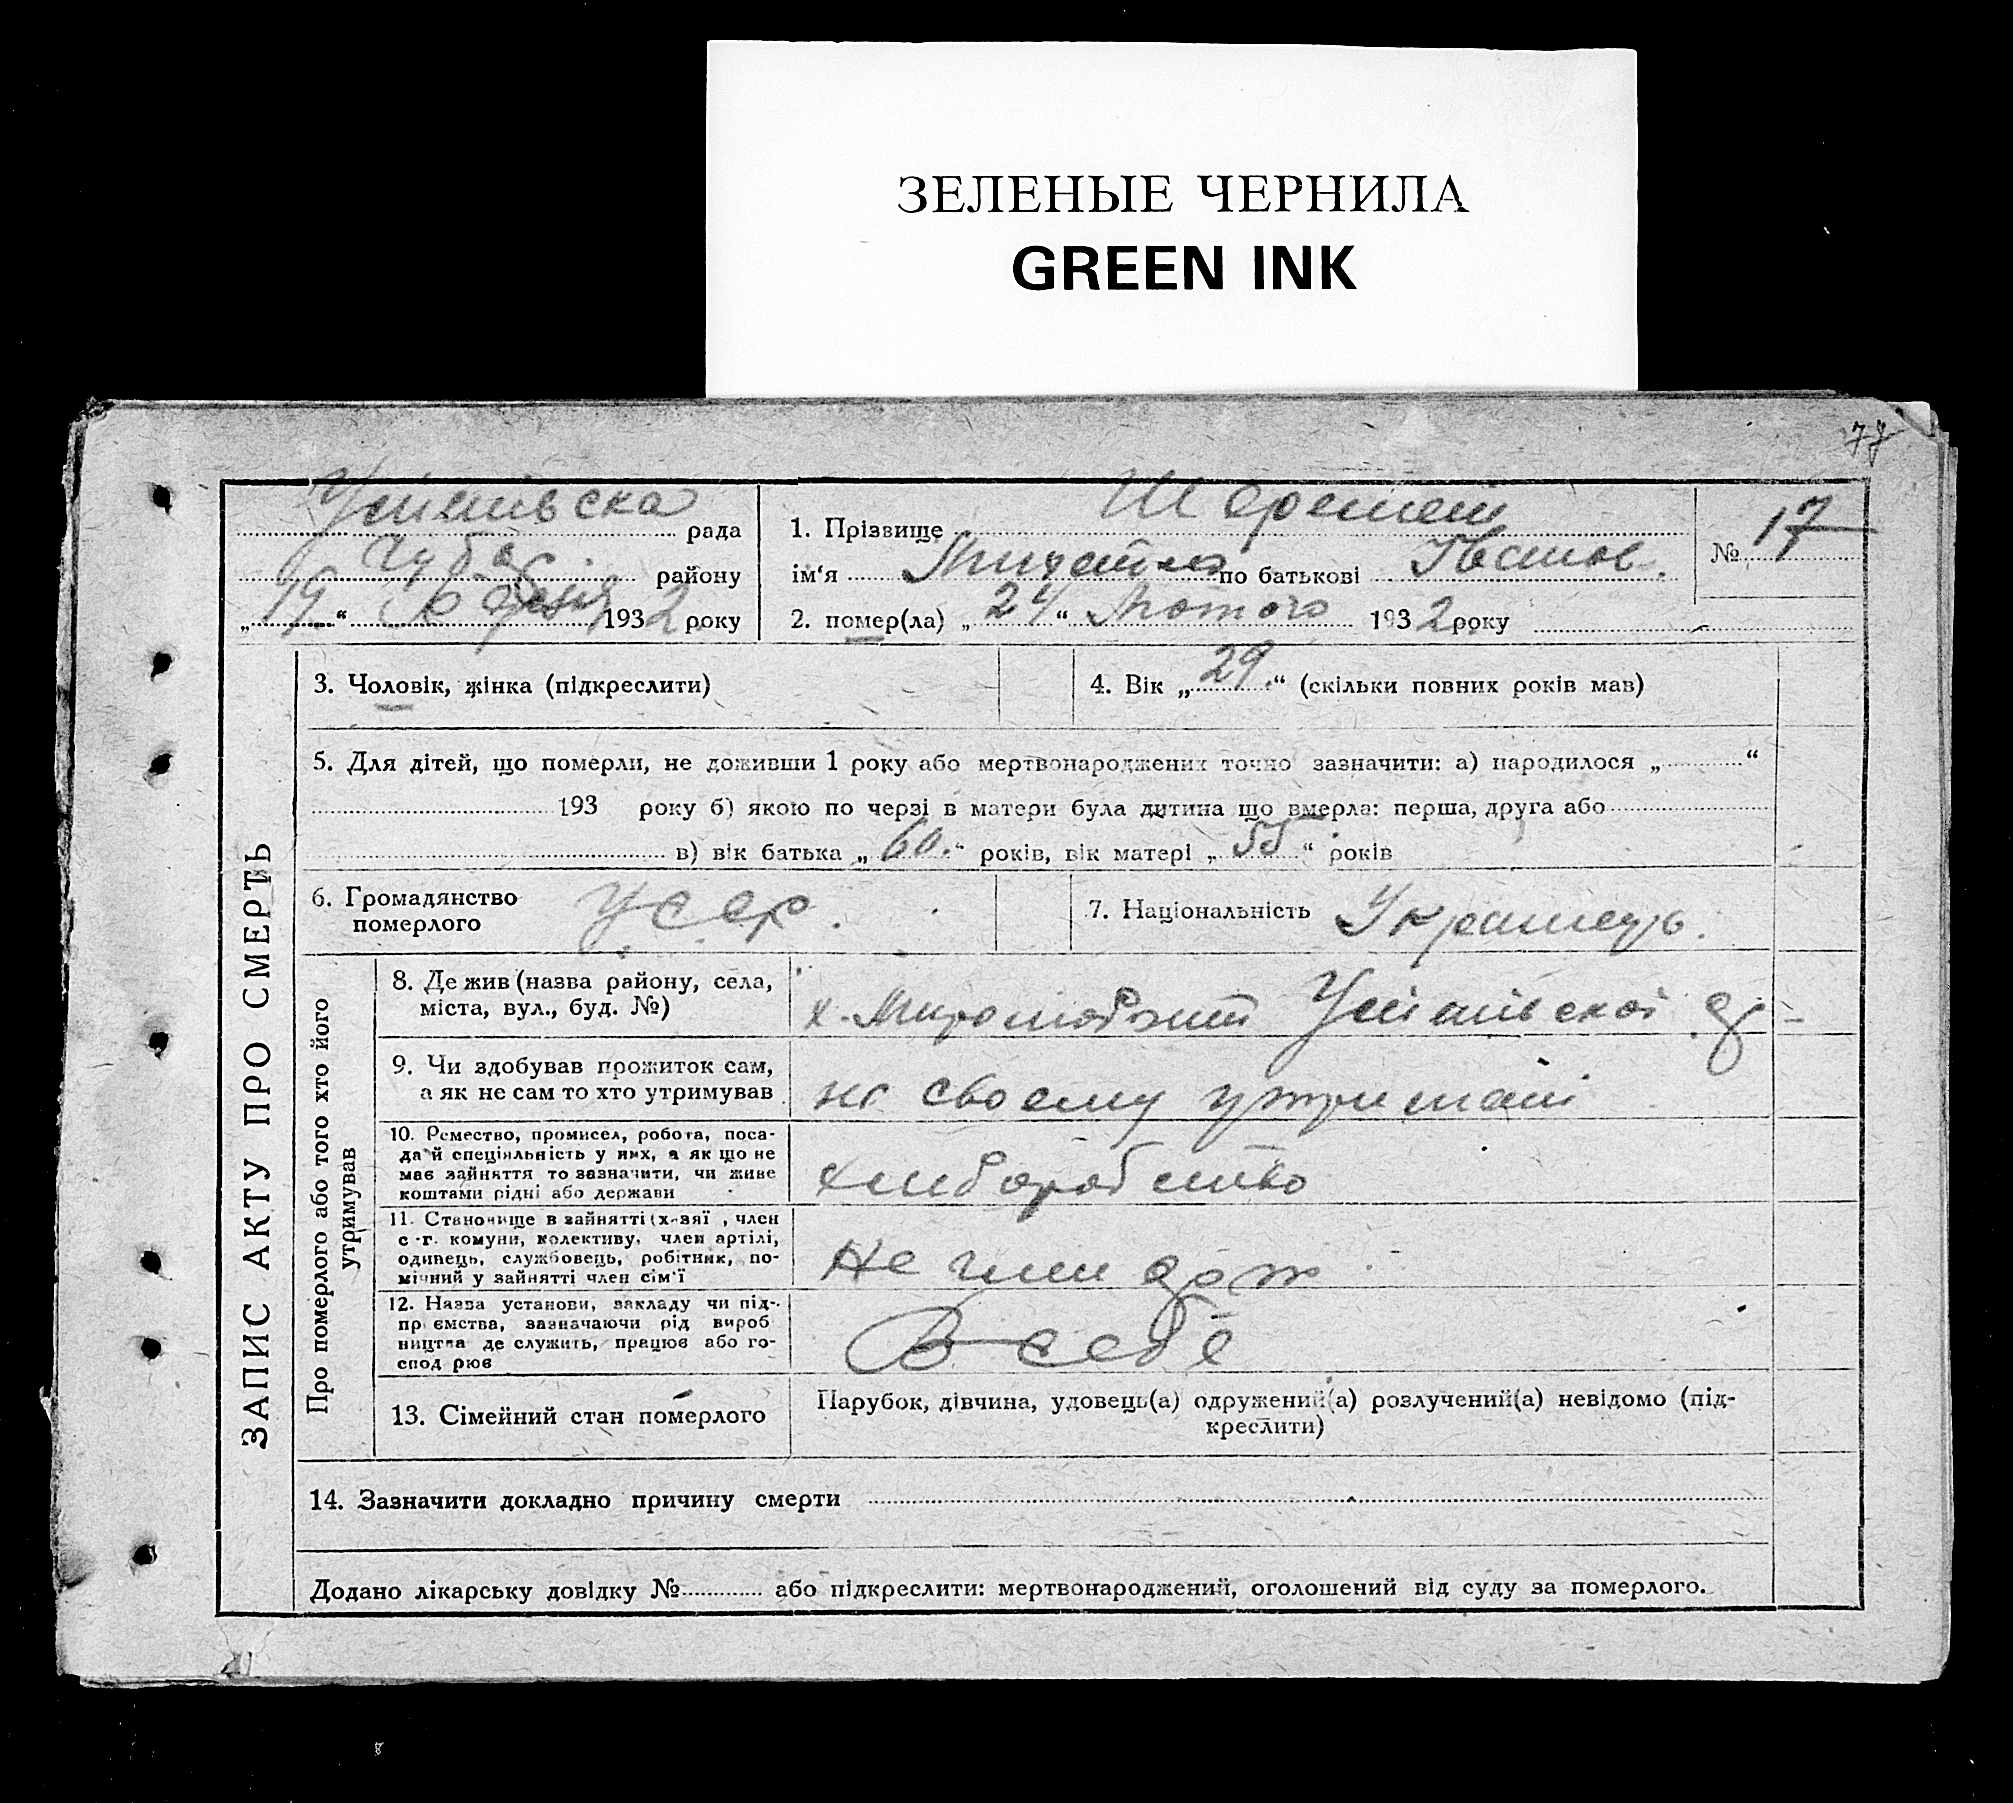 ЗЕЛЕНЫЕ ЧЕРНИЛА
GREEN INK
77
рада
району
„19“ 1932 року
1. Прізвище Шеремет
ім‘я Михайло по батькові Іванов.
2. помер(ла) „24“ Лютого 1932 року
№ 17
3. Чоловік, жінка (підкреслити)
4. Вік „29“ (скільки повних років мав)
5. Для дітей, що померли, не доживши 1 року або мертвонароджених точно зазначити: а) народилося „ “
193 року б) якою по черзі в матери була дитина що вмерла: перша, друга або
в) вік батька „60.“ років, вік матері „55“ років
6. Громадянство
померлого
УССР.
7. Національність Українець.
ЗАПИС АКТУ ПРО СМЕРТЬ
Про померлого або того хто його
утримував
8. Де жив (назва району, села,
міста, вул., буд. №)
х.
9. Чи здобував прожиток сам,
а як не сам то хто утримував
на своему утримані
10. Ремество, промисел, робота, поса-
да й спеціяльність у них, а як що не
має зайняття то зазначити, чи живе
коштами рідні або держави
хліборобство
11. Становище в зайнятті (х-зяї , член
с.-г. комуни, колективу, член артілі,
одинець, службовець, робітник, по-
мічний у зайнятті член сім'ї
Не член
12. Назва установи, закладу чи під-
пр ємства, зазначаючи рід вироб
ництва де служить, працює або го-
спод рює
В себе
13. Сімейний стан померлого
Парубок, дівчина, удовець(а) одружений(а) розлучений(а) невідомо (під-
креслити)
14. Зазначити докладно причину смерти
Додано лікарську довідку № або підкреслити: мертвонароджений, оголошений від суду за померлого.